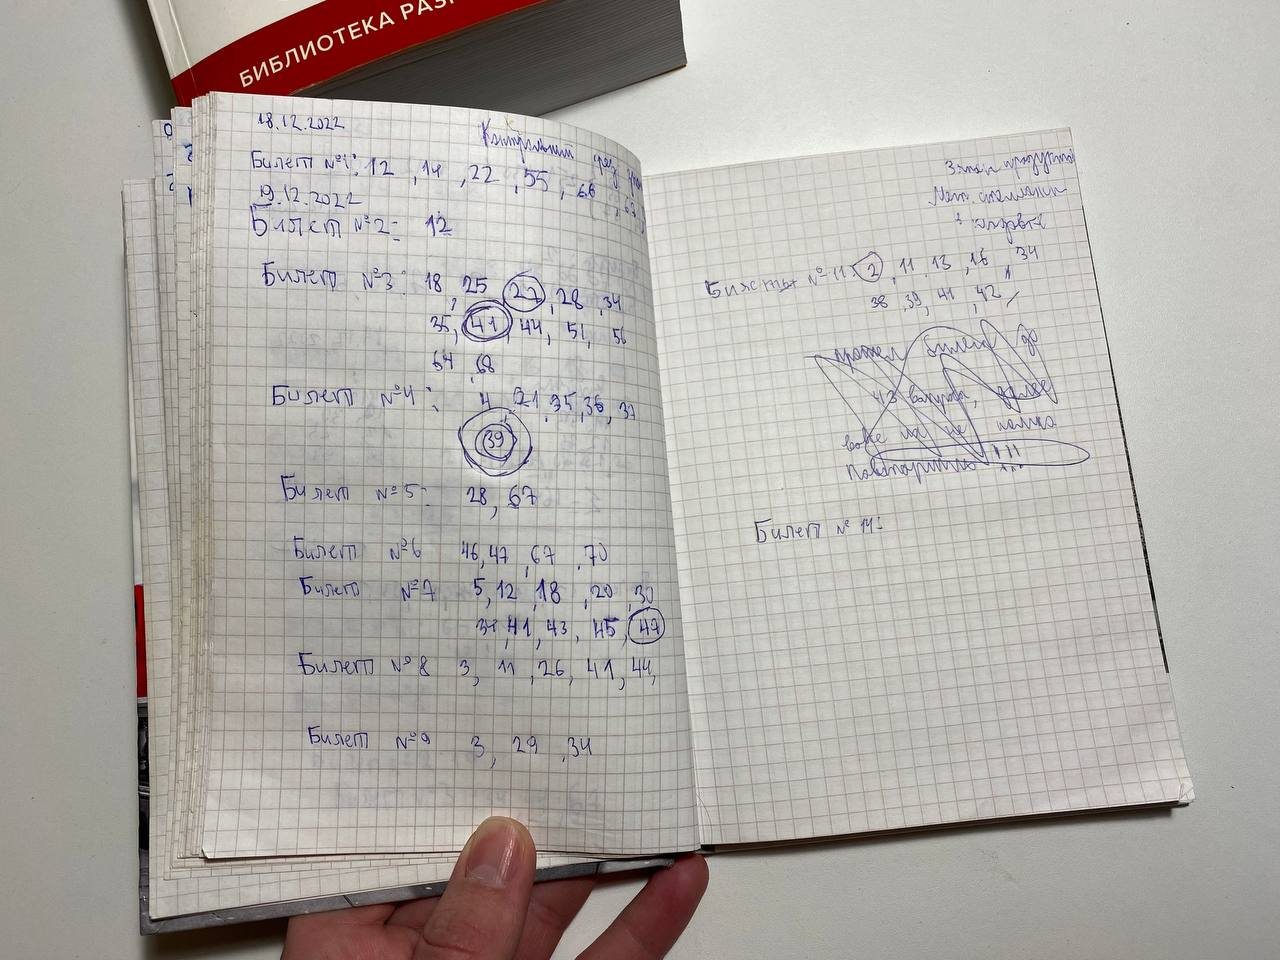 БИБЛИОТЕКА РАЗР
18.12.2022
Контрольний срез
Билет №1: 12, 14, 22, 55, 66, 67
19.12.2022
Билет №2: 12
Билет №3: 18, 25, 27, 28, 34
35, 41, 44, 51, 56
64, 68
Билет №4: 4, 21, 35, 36, 37
39
Билет №5: 28, 67
Билет №6 46, 47, 67, 70
Билет №7 5, 12, 18, 20, 30
41, 43, 45, 47
Билет №8 3, 11, 26, 41, 44,
Билет №9 3, 29, 34
Билеты №11 2, 11, 13, 16, 34
38, 39, 41, 42
прошел билет до
43 вопроса, далее
повторить !!!
Билет №14: